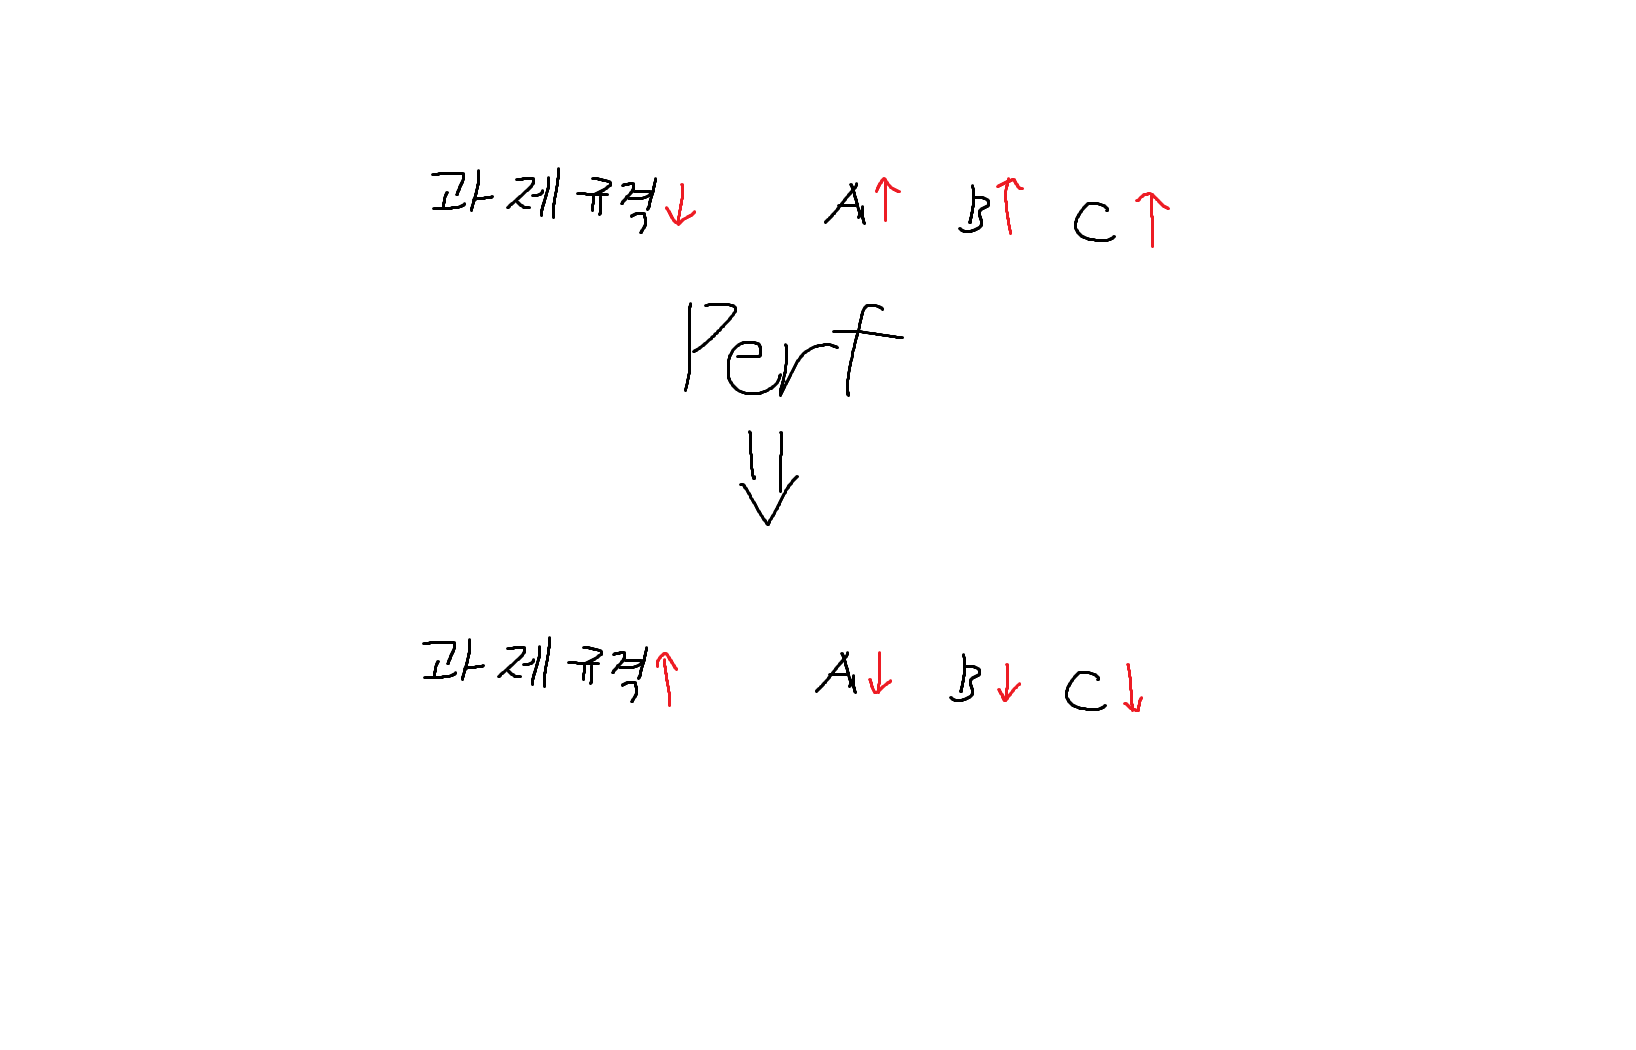 과제규격↓ A↑ B↑ C↑
Perf
⇓
과제규격↑ A↓ B↓ C↓